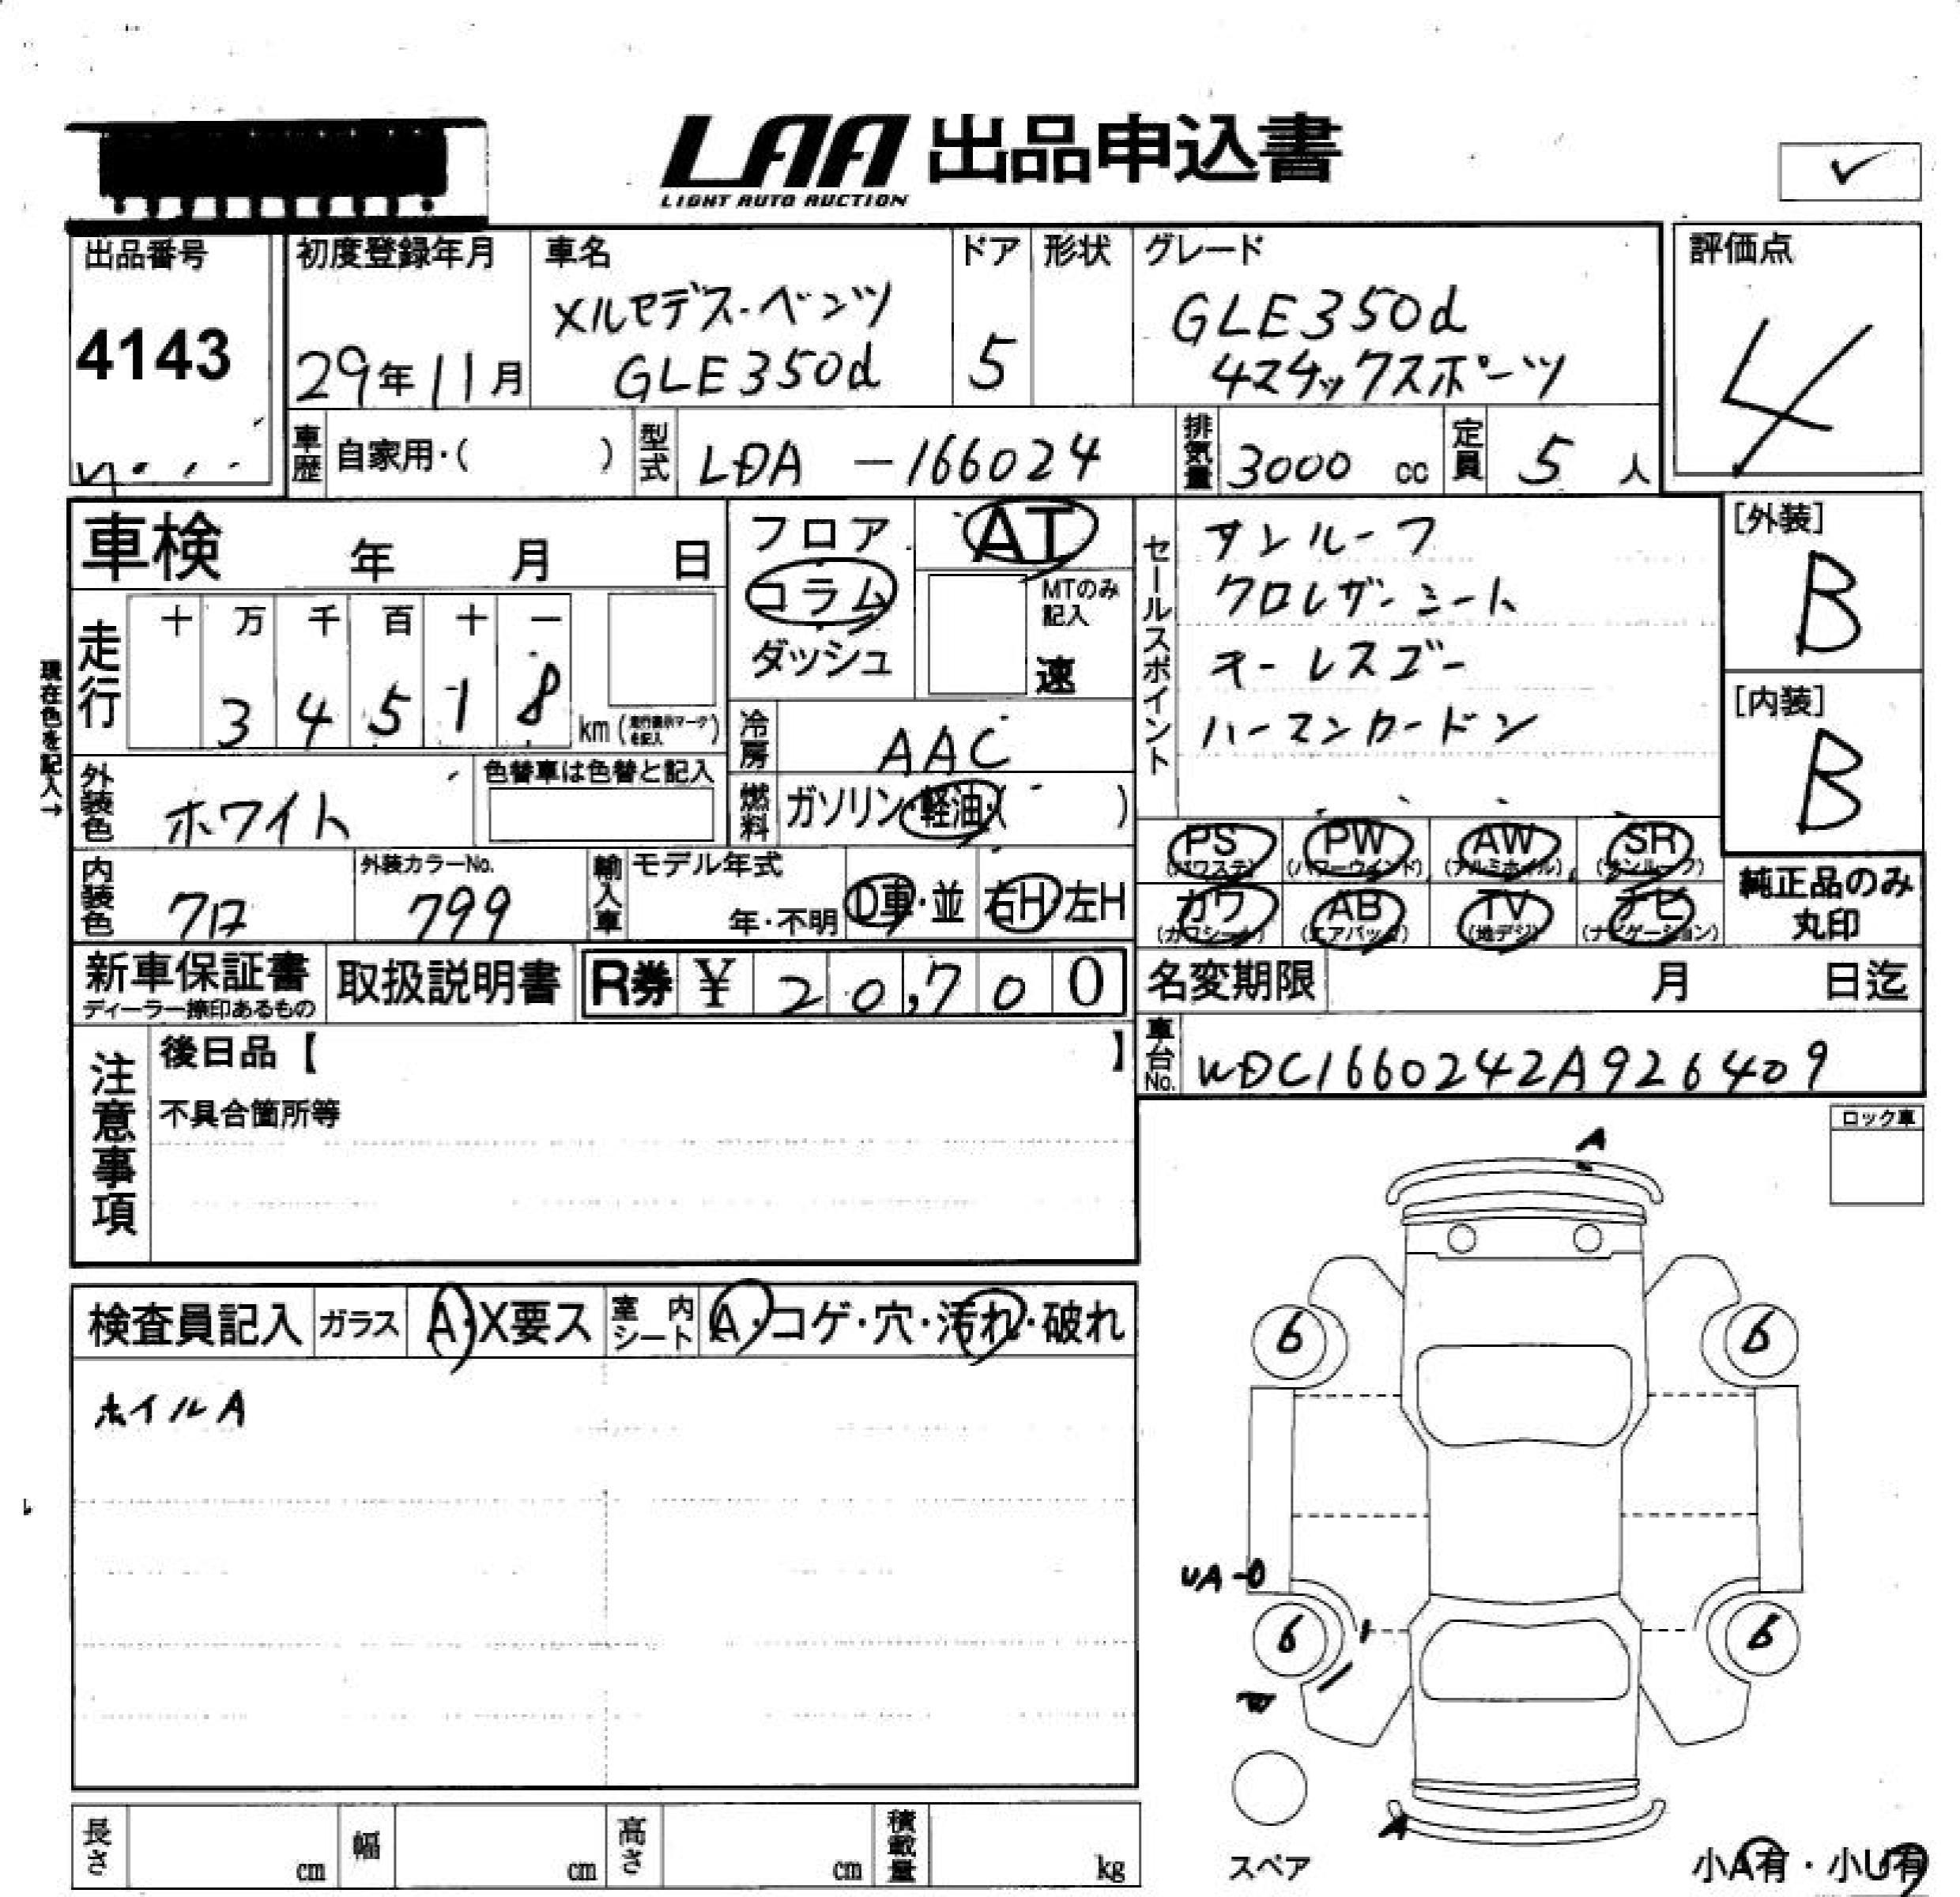 LAA 出品申込書
LIGHT AUTO AUCTION
✓
出品番号
4143
初度登録年月
29年11月
車名
メルセデス・ベンツ
GLE350d
ドア
5
形状
グレード
GLE350d
4マチックスポーツ
評価点
4
車歴 自家用・( )
型式 LDA -166024
排気量 3000 cc
定員 5 人
車検 年 月 日
フロア
コラム
ダッシュ
AT
MTのみ
記入
速
セールスポイント
サンルーフ
クロレザーシート
キーレスゴー
ハーマンカードン
[外装]
B
[内装]
B
現在色を記入→
走行
十 万 千 百 十 一
3 4 5 1 8 km
冷房 AAC
外装色 ホワイト
色替車は色替と記入
燃料 ガソリン・軽油・( )
PS PW AW SR
(パワステ) (パワーウインド) (アルミホイル) (サンルーフ)
カワ AB TV ナビ
(カワシート) (エアバッグ) (地デジ) (ナビゲーション)
純正品のみ
丸印
内装色 クロ
外装カラーNo.
799
輸入車
モデル年式
年・不明
D車・並
右H 左H
新車保証書
ディーラー捺印あるもの
取扱説明書
R券 ¥ 20,700
名変期限 月 日迄
車台No. WDC1660242A926409
注意事項
後日品【 】
不具合箇所等
ロック車
検査員記入 ガラス A・X要ス 室内シート A・コゲ・穴・汚れ・破れ
ホイルA
A
6 6
UA
6 6
A
スペア
長さ cm 幅 cm 高さ cm 積載量 kg
小A有・小U有